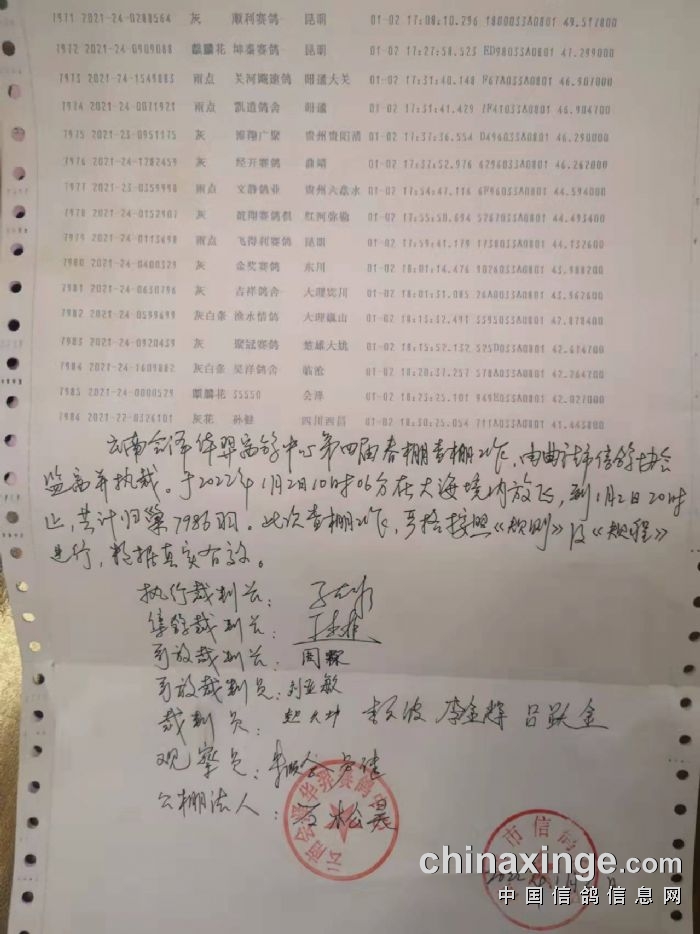 7971 2021-24-0288564 灰 顺利赛鸽 昆明 01-02 17:08:10.296 1800033A0801 49.517800
7972 2021-24-0909088 麒麟花 坤泰赛鸽 昆明 01-02 17:27:58.523 ED98033A0801 47.299000
7973 2021-24-1549883 雨点 关河飚速鸽 昭通大关 01-02 17:31:40.148 F67A033A0801 46.907000
7974 2021-24-0071921 雨点 凯造鸽舍 昭通 01-02 17:31:41.429 46.904700
7975 2021-23-0951175 灰 广聚 贵州贵阳清 01-02 17:37:36.554 D496033A0801 46.290000
7976 2021-24-1282459 灰 经开赛鸽 曲靖 01-02 17:37:52.976 6296033A0801 46.262000
7977 2021-23-0359998 雨点 文静鸽业 贵州六盘水 01-02 17:54:47.116 6F96033A0801 44.594000
7978 2021-24-0152907 灰 赛鸽俱 红河弥勒 01-02 17:55:50.694 5267033A0801 44.493400
7979 2021-24-0113698 雨点 飞得利赛鸽 昆明 01-02 17:59:41.179 1738033A0801 44.132600
7980 2021-24-0400329 灰 金奖赛鸽 东川 01-02 18:01:14.476 1026033A0801 43.988200
7981 2021-24-0630796 灰 吉祥鸽舍 大理宾川 01-02 18:01:31.085 26A0033A0801 43.962600
7982 2021-24-0599699 灰白条 渔水情鸽 大理巍山 01-02 18:13:32.491 3395033A0801 42.878400
7983 2021-24-0920439 灰 聚冠赛鸽 楚雄大姚 01-02 18:15:52.132 525D033A0801 42.614700
7984 2021-24-1609882 灰白条 昊洋鸽舍 临沧 01-02 18:20:37.257 578A033A0801 42.264700
7985 2021-24-0000529 麒麟花 35550 会泽 01-02 18:23:25.101 949E033A0801 42.027000
7986 2021-22-0326101 灰花 孙健 四川西昌 01-02 18:30:25.054 711A033A0801 41.443800
云南会泽华羿赛鸽中心第四届春棚查棚工作，由曲靖市信鸽协会
监赛并执裁。于2022年1月2日10时06分在大海境内放飞，到1月2日20时
止，共计归巢7986羽。此次查棚工作，严格按照《规则》及《规程》
进行，数据真实有效。
执行裁判长：
集鸽裁判长：
司放裁判长：周霖
司放裁判员：刘亚敏
裁判员： 李金辉 吕跃金
观察员：
公棚法人： 石松昊
云南会泽华羿赛鸽中
市信鸽
chinaxinge.com
中国信鸽信息网